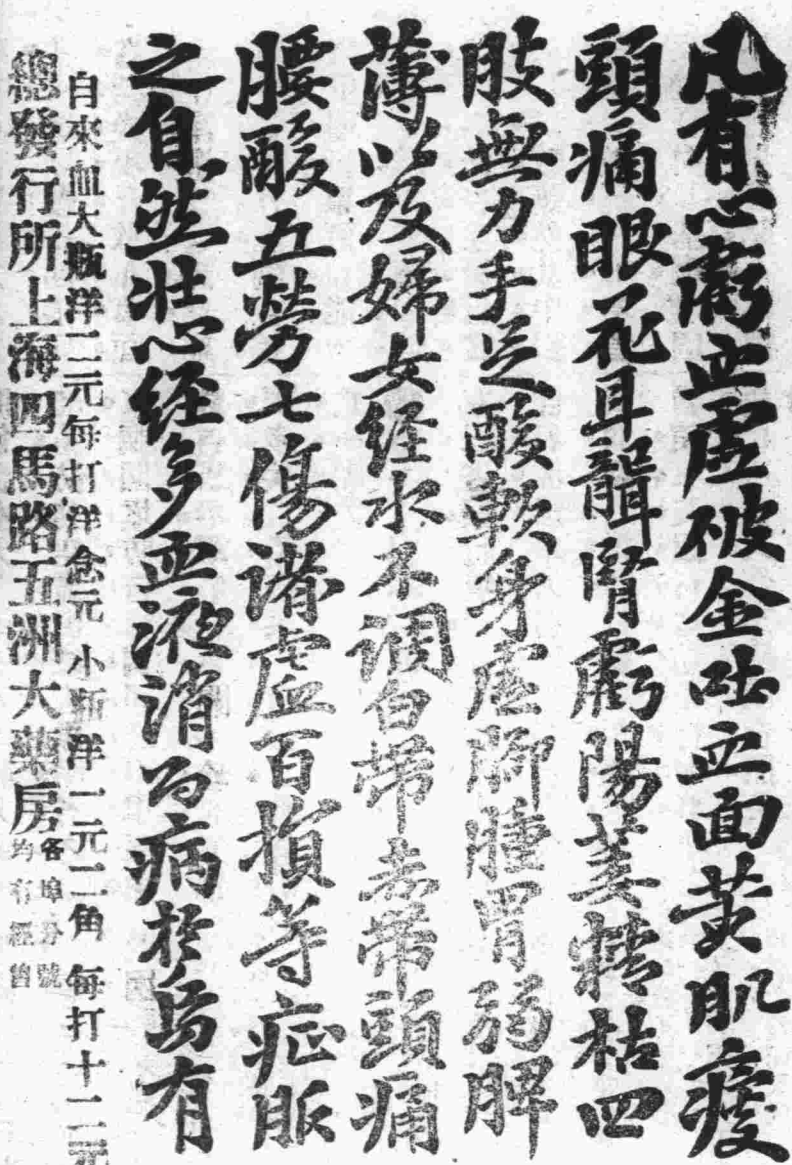 凡有心虧血虛破金吐血面黃肌瘦
頭痛眼花耳聾腎虧陽萎精枯四
肢無力手足酸軟身虛腳腫胃弱脾
薄以及婦女经水不調白帶赤帶頭痛
腰酸五勞七傷諸虛百損等症服
之自然壯心经多血液消病於烏有
自來血大瓶洋二元每打洋念元 小瓶洋一元二角 每打十二元
總發行所上海四馬路五洲大藥房
各埠分號
均有經售